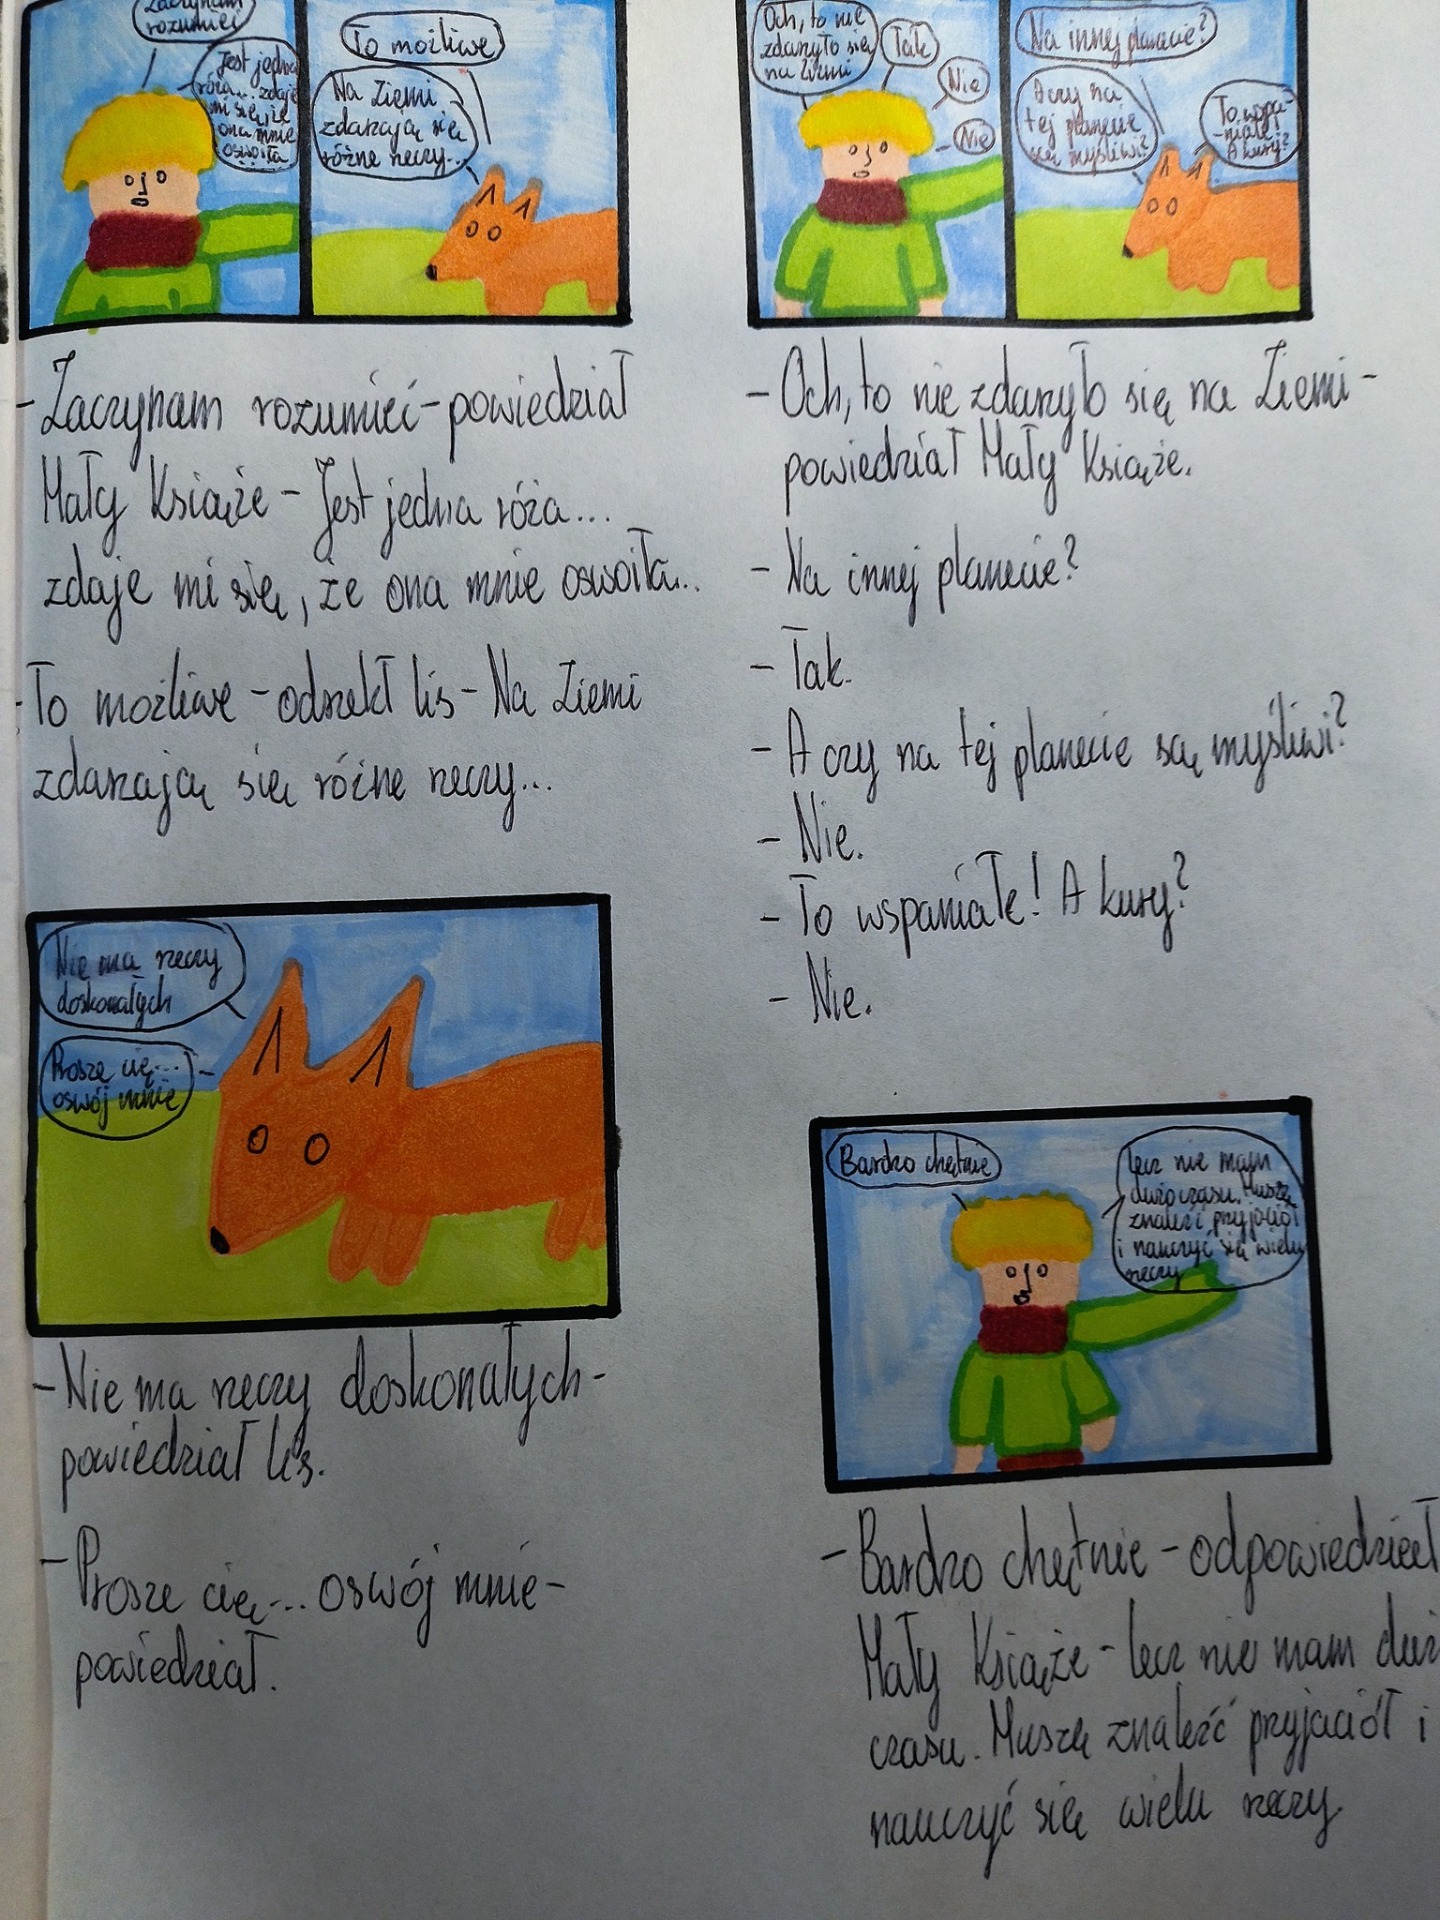 Zaczynam
rozumieć
Jest jedna
róża... zdaje
mi się, że
ona mnie
oswoiła
To możliwe
Na Ziemi
zdarzają się
różne rzeczy...
- Zaczynam rozumieć - powiedział
Mały Książe - Jest jedna róża...
zdaje mi się, że ona mnie oswoiła...
- To możliwe - odrzekł lis - Na Ziemi
zdarzają się różne rzeczy...
Och, to nie
zdarzyło się
na Ziemi
Tak
Nie
Nie
Na innej planecie?
A czy na
tej planecie
są myśliwi?
To wspa-
-niałe!
A kury?
- Och, to nie zdarzyło się na Ziemi -
powiedział Mały Książe.
- Na innej planecie?
- Tak.
- A czy na tej planecie są myśliwi?
- Nie.
- To wspaniałe! A kury?
- Nie.
Nie ma rzeczy
doskonałych
Proszę cię...
oswój mnie
- Nie ma rzeczy doskonałych -
powiedział lis.
- Prosze cię... oswój mnie -
powiedział.
Bardzo chętnie
lecz nie mam
dużo czasu. Muszę
znaleźć przyjaciół
i nauczyć się wielu
rzeczy
- Bardzo chętnie - odpowiedział
Mały Książe - lecz nie mam duż
czasu. Muszę znaleźć przyjaciół i
nauczyć się wielu rzeczy